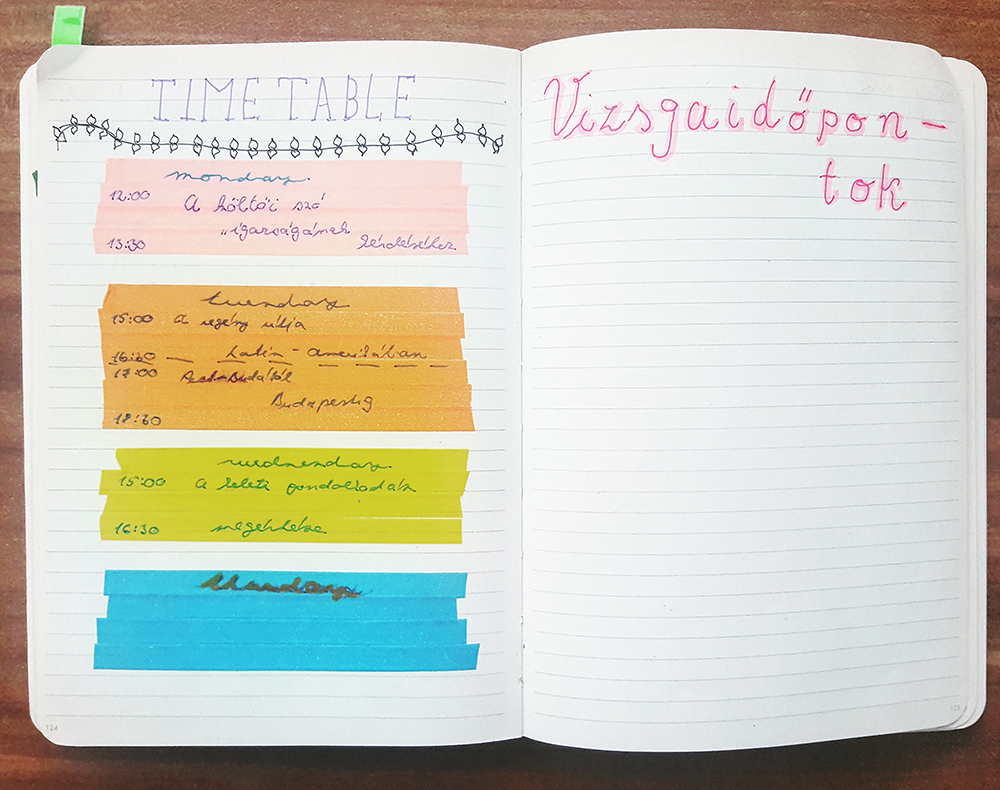 TIME TABLE
monday
12:00 A költői szó
„igazságának
13:30 kérdéséhez
tuesday
15:00 A regény útja
16:30 — Latin-amerikában
17:00 Pest-Budától
Budapestig
18:30
wednesday
15:00 A keleti gondolkodás
16:30 megértése
thursday
124
Vizsgaidőpon-
tok
125